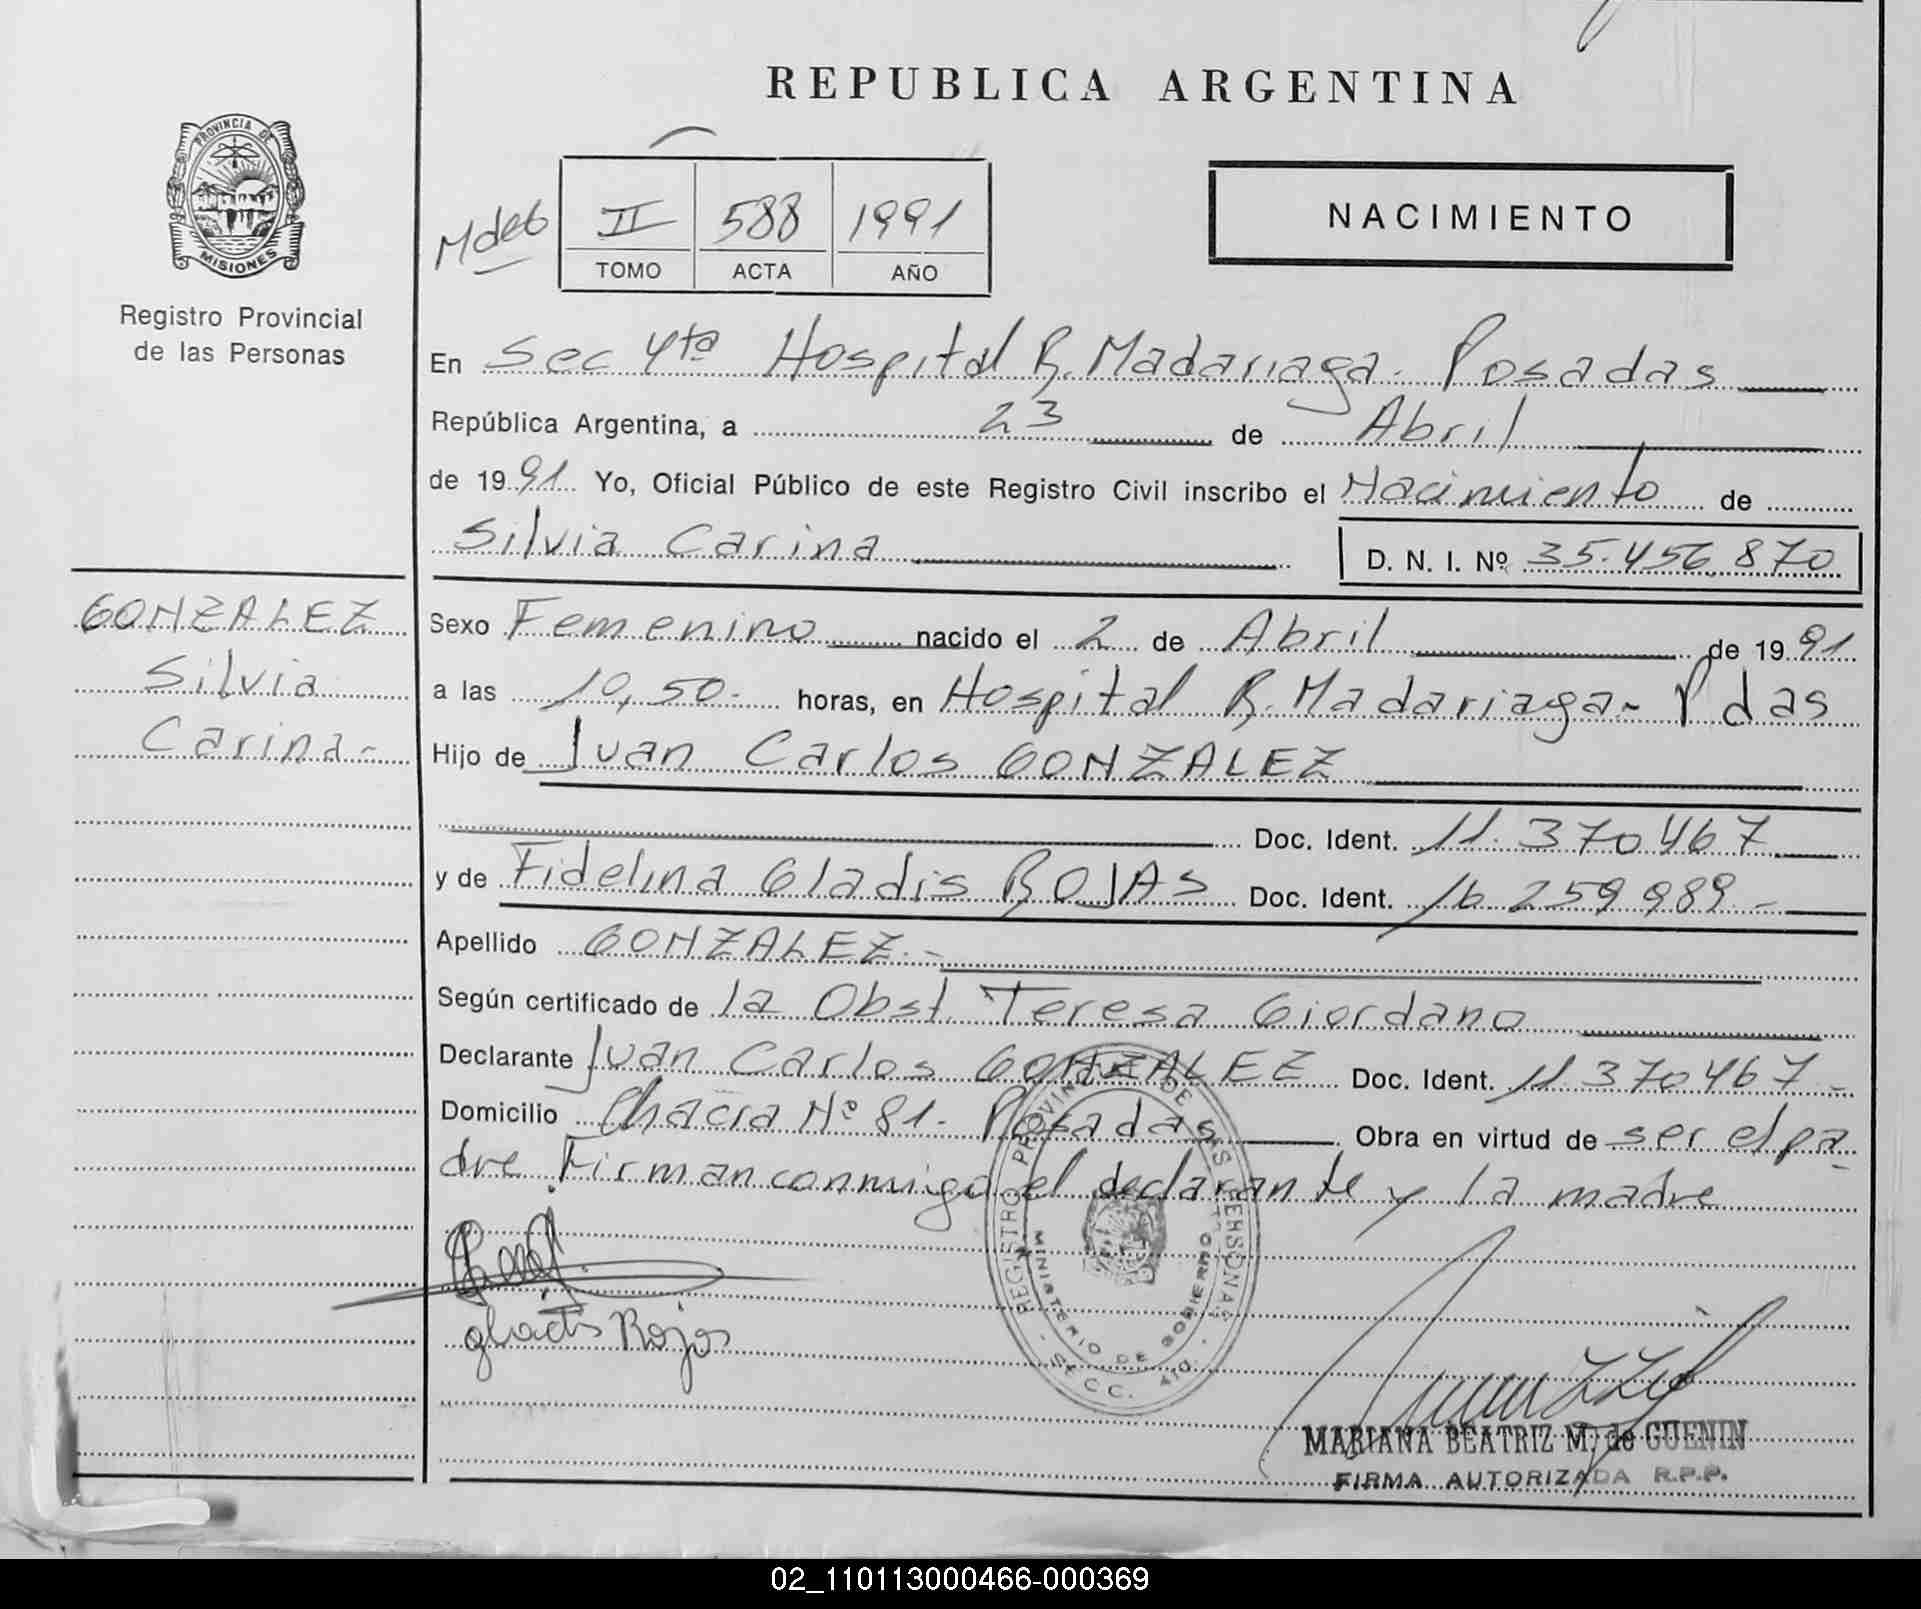 REPUBLICA ARGENTINA
PROVINCIA DE
MISIONES
Registro Provincial
de las Personas
II 588 1991
TOMO ACTA AÑO
NACIMIENTO
En Sec 4ta Hospital R. Madariaga. Posadas
República Argentina, a 23 de Abril
de 1991 Yo, Oficial Público de este Registro Civil inscribo el Nacimiento de
Silvia Carina D. N. I. Nº 35.456.870
GONZALEZ
Silvia
Carina-
Sexo Femenino nacido el 2 de Abril de 1991
a las 10,50- horas, en Hospital R. Madariaga- Pdas
Hijo de Juan Carlos GONZALEZ
Doc. Ident. 11.370467
y de Fidelina Gladis ROJAS Doc. Ident. 16 259 989-
Apellido GONZALEZ.-
Según certificado de la Obst. Teresa Giordano
Declarante Juan Carlos GONZALEZ Doc. Ident. 11 370467-
Domicilio Chacra Nº 81- Posadas Obra en virtud de ser el pa-
dre Firman conmigo el declarante y la madre
gladis Rojas
REGISTRO PROVINCIAL DE LAS PERSONAS
MINISTERIO DE GOBIERNO
- SECC. 4TO. -
MARIANA BEATRIZ M. de GUENIN
FIRMA AUTORIZADA R.P.P.
02_110113000466-000369